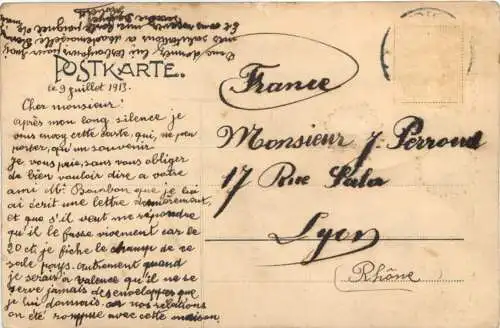 POSTKARTE.
le 9 juillet 1913.
Cher monsieur!
après mon long silence je
vous envoy cette carte, qui, ne peu
porter, qu'un souvenir.
Je vous prie, sans vous obliger
de bien vouloir dire a votre
ami Mr. Bourbon que je lui
ai écrit une lettre dernièrement,
et que s'il veut me répondre
qu'il le fasse vivement car le
20 ct je fiche le change de ce
sale pays. autrement quand
je serai a valence qu'il ne se
serve jamais des enveloppes que
je lui donnais. car nos relations
on été rompue avec cette maison.
France
Monsieur J. Perroud
17 Rue Sala
Lyon
Rhône